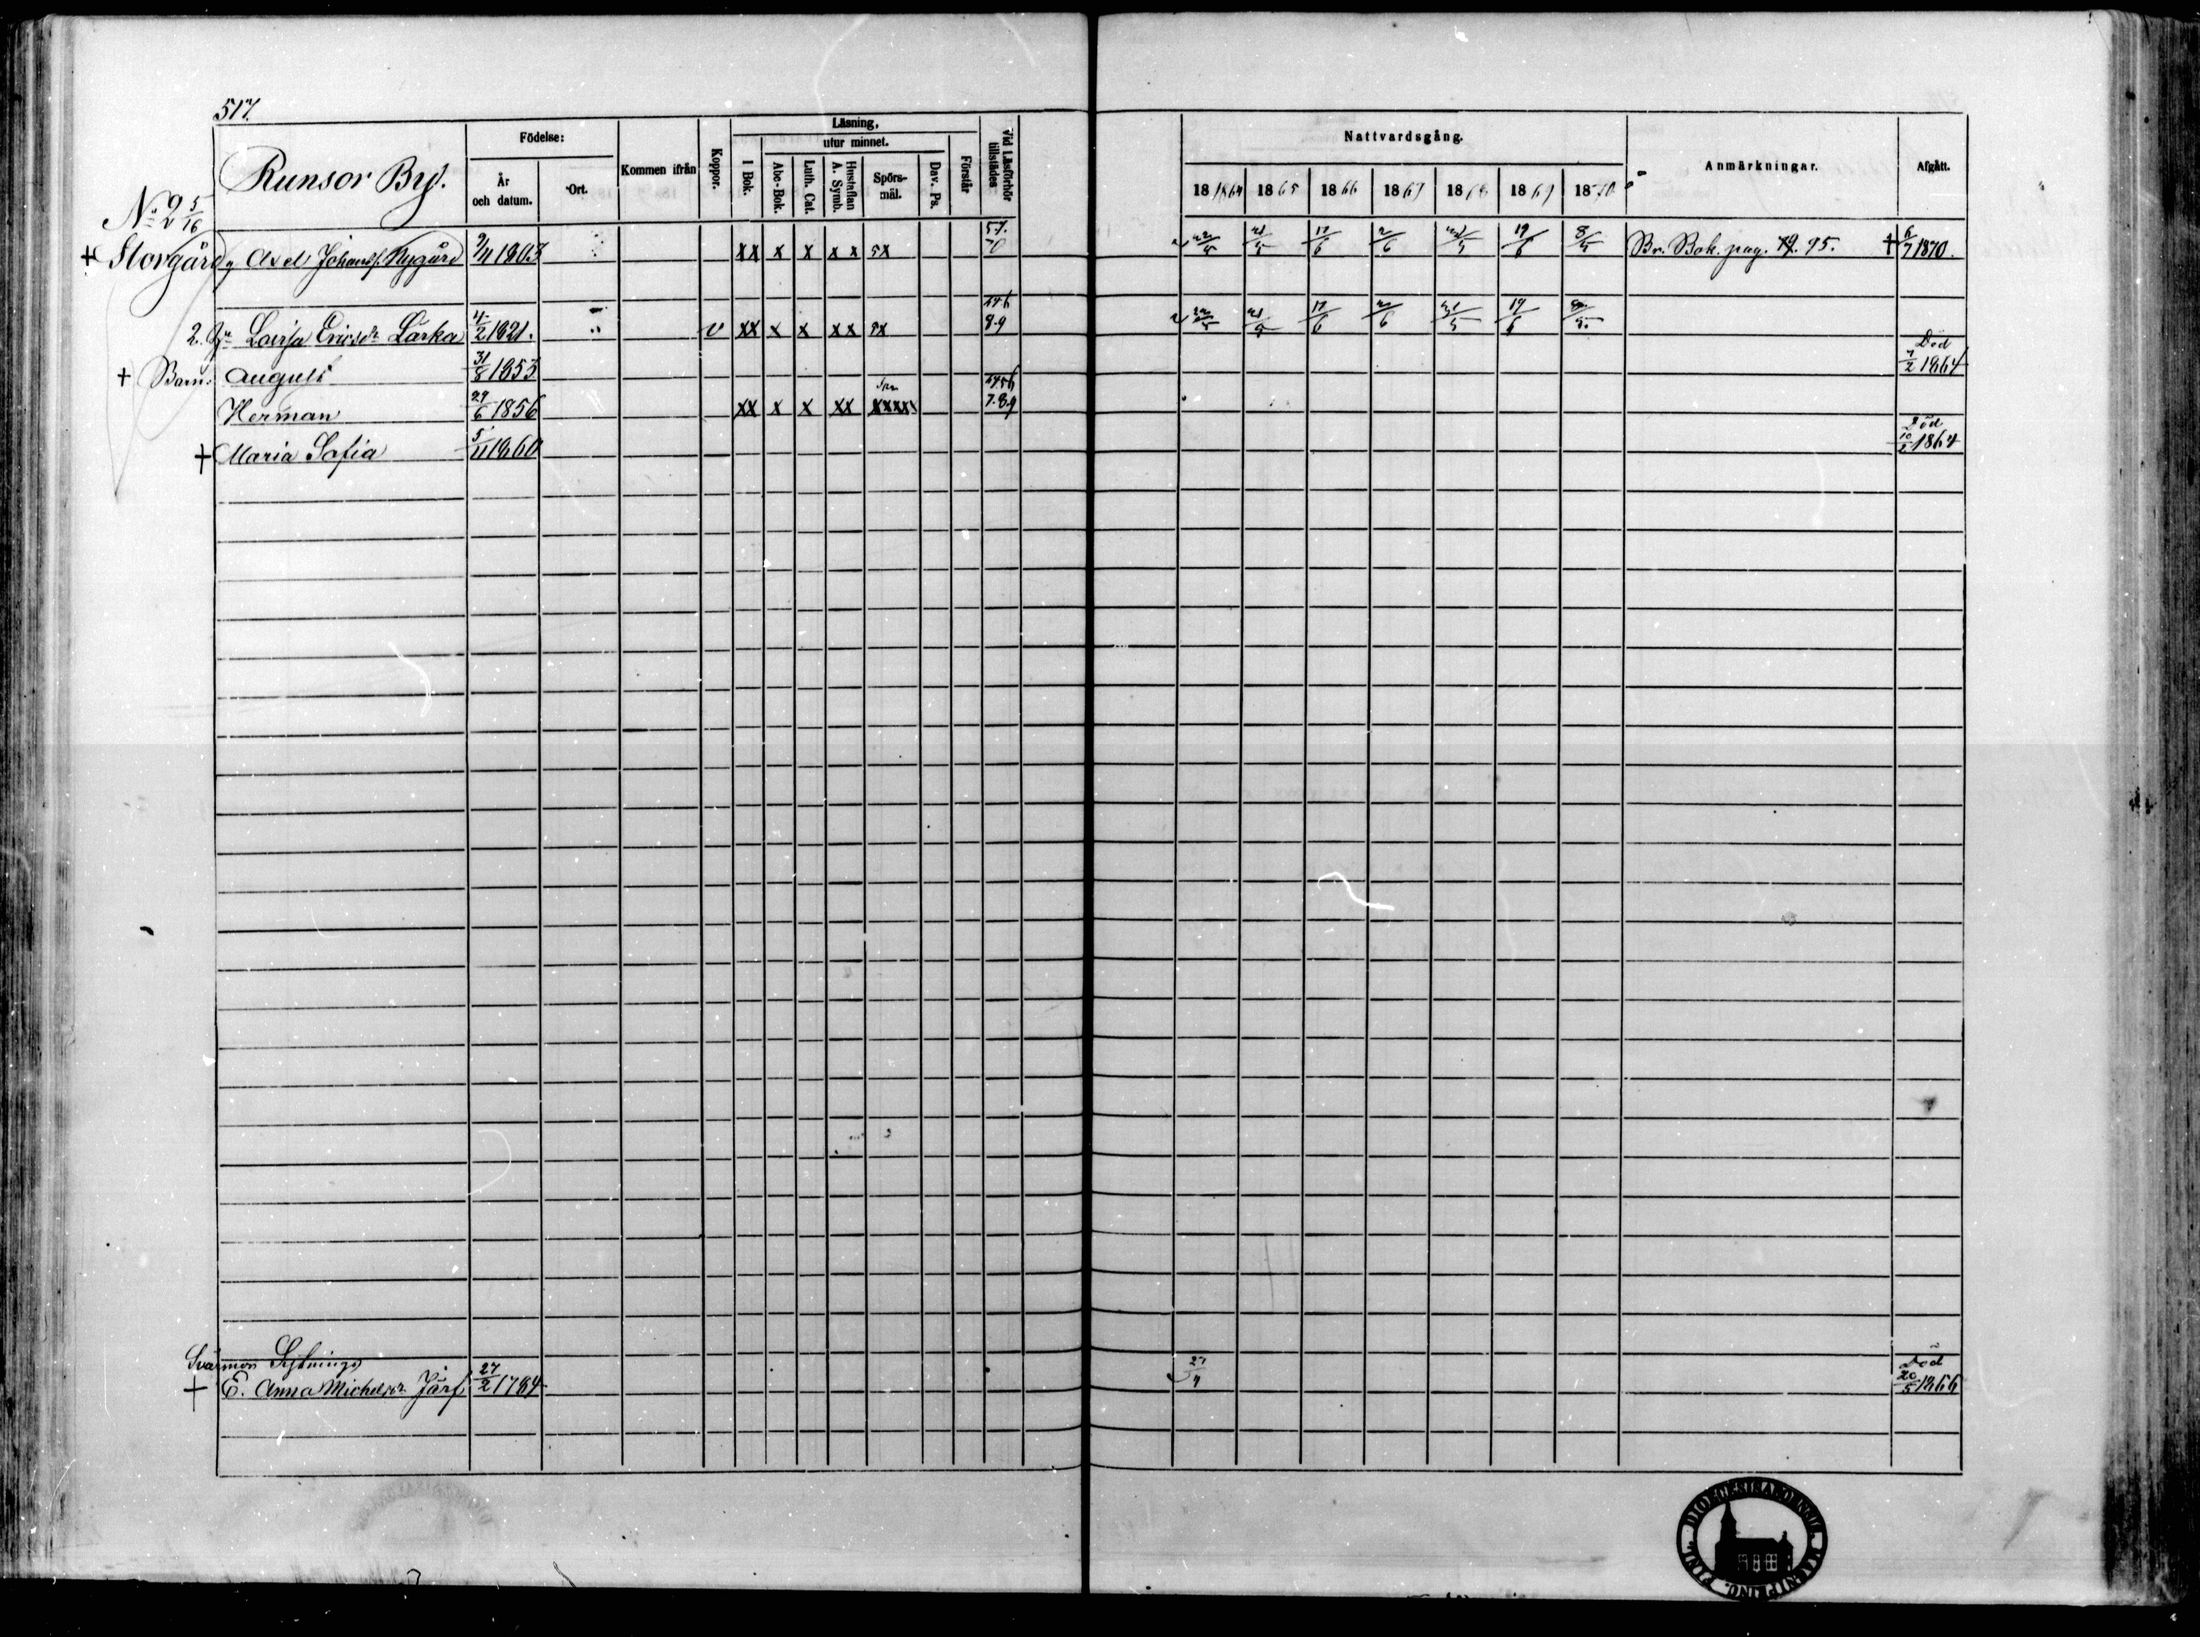 517.
Födelse:
Läsning,
utur minnet.
Runsor By.
År och datum.
Ort.
Kommen ifrån
Koppor.
I Bok.
Abc-Bok.
Luth. Cat.
Hustaflan A. Symb.
Spörs-mål.
Dav. Ps.
Förstår
Vid Läsförhör tillstädes
Nattvardsgång.
1864 1865 1866 1867 1868 1869 1870
Anmärkningar.
Afgått.
No 2 5/16
+ Storgård Axel Johanss. Nygård 9/11 1803 xx x x x x 5x 22/5 21/5 17/6 2/6 19/6 8/5 Br. Bok. pag. 95. + 6/7 1870.
2. Lovisa Ericsdr Lärka 11/2 1821. v xx x x xx 5x 8.9 17/6 19/6
+ Barn: August 31/8 1853 Död 7/2 1864
Herman 29/6 1856 xx x x xx xxxx 7.8.9
+ Maria Sofia 5/11 1860 Död 10/2 1864
Svärmor Sytnings
+ E. Anna Michelsdr Järf 27/2 1784 Död 20/5 1866